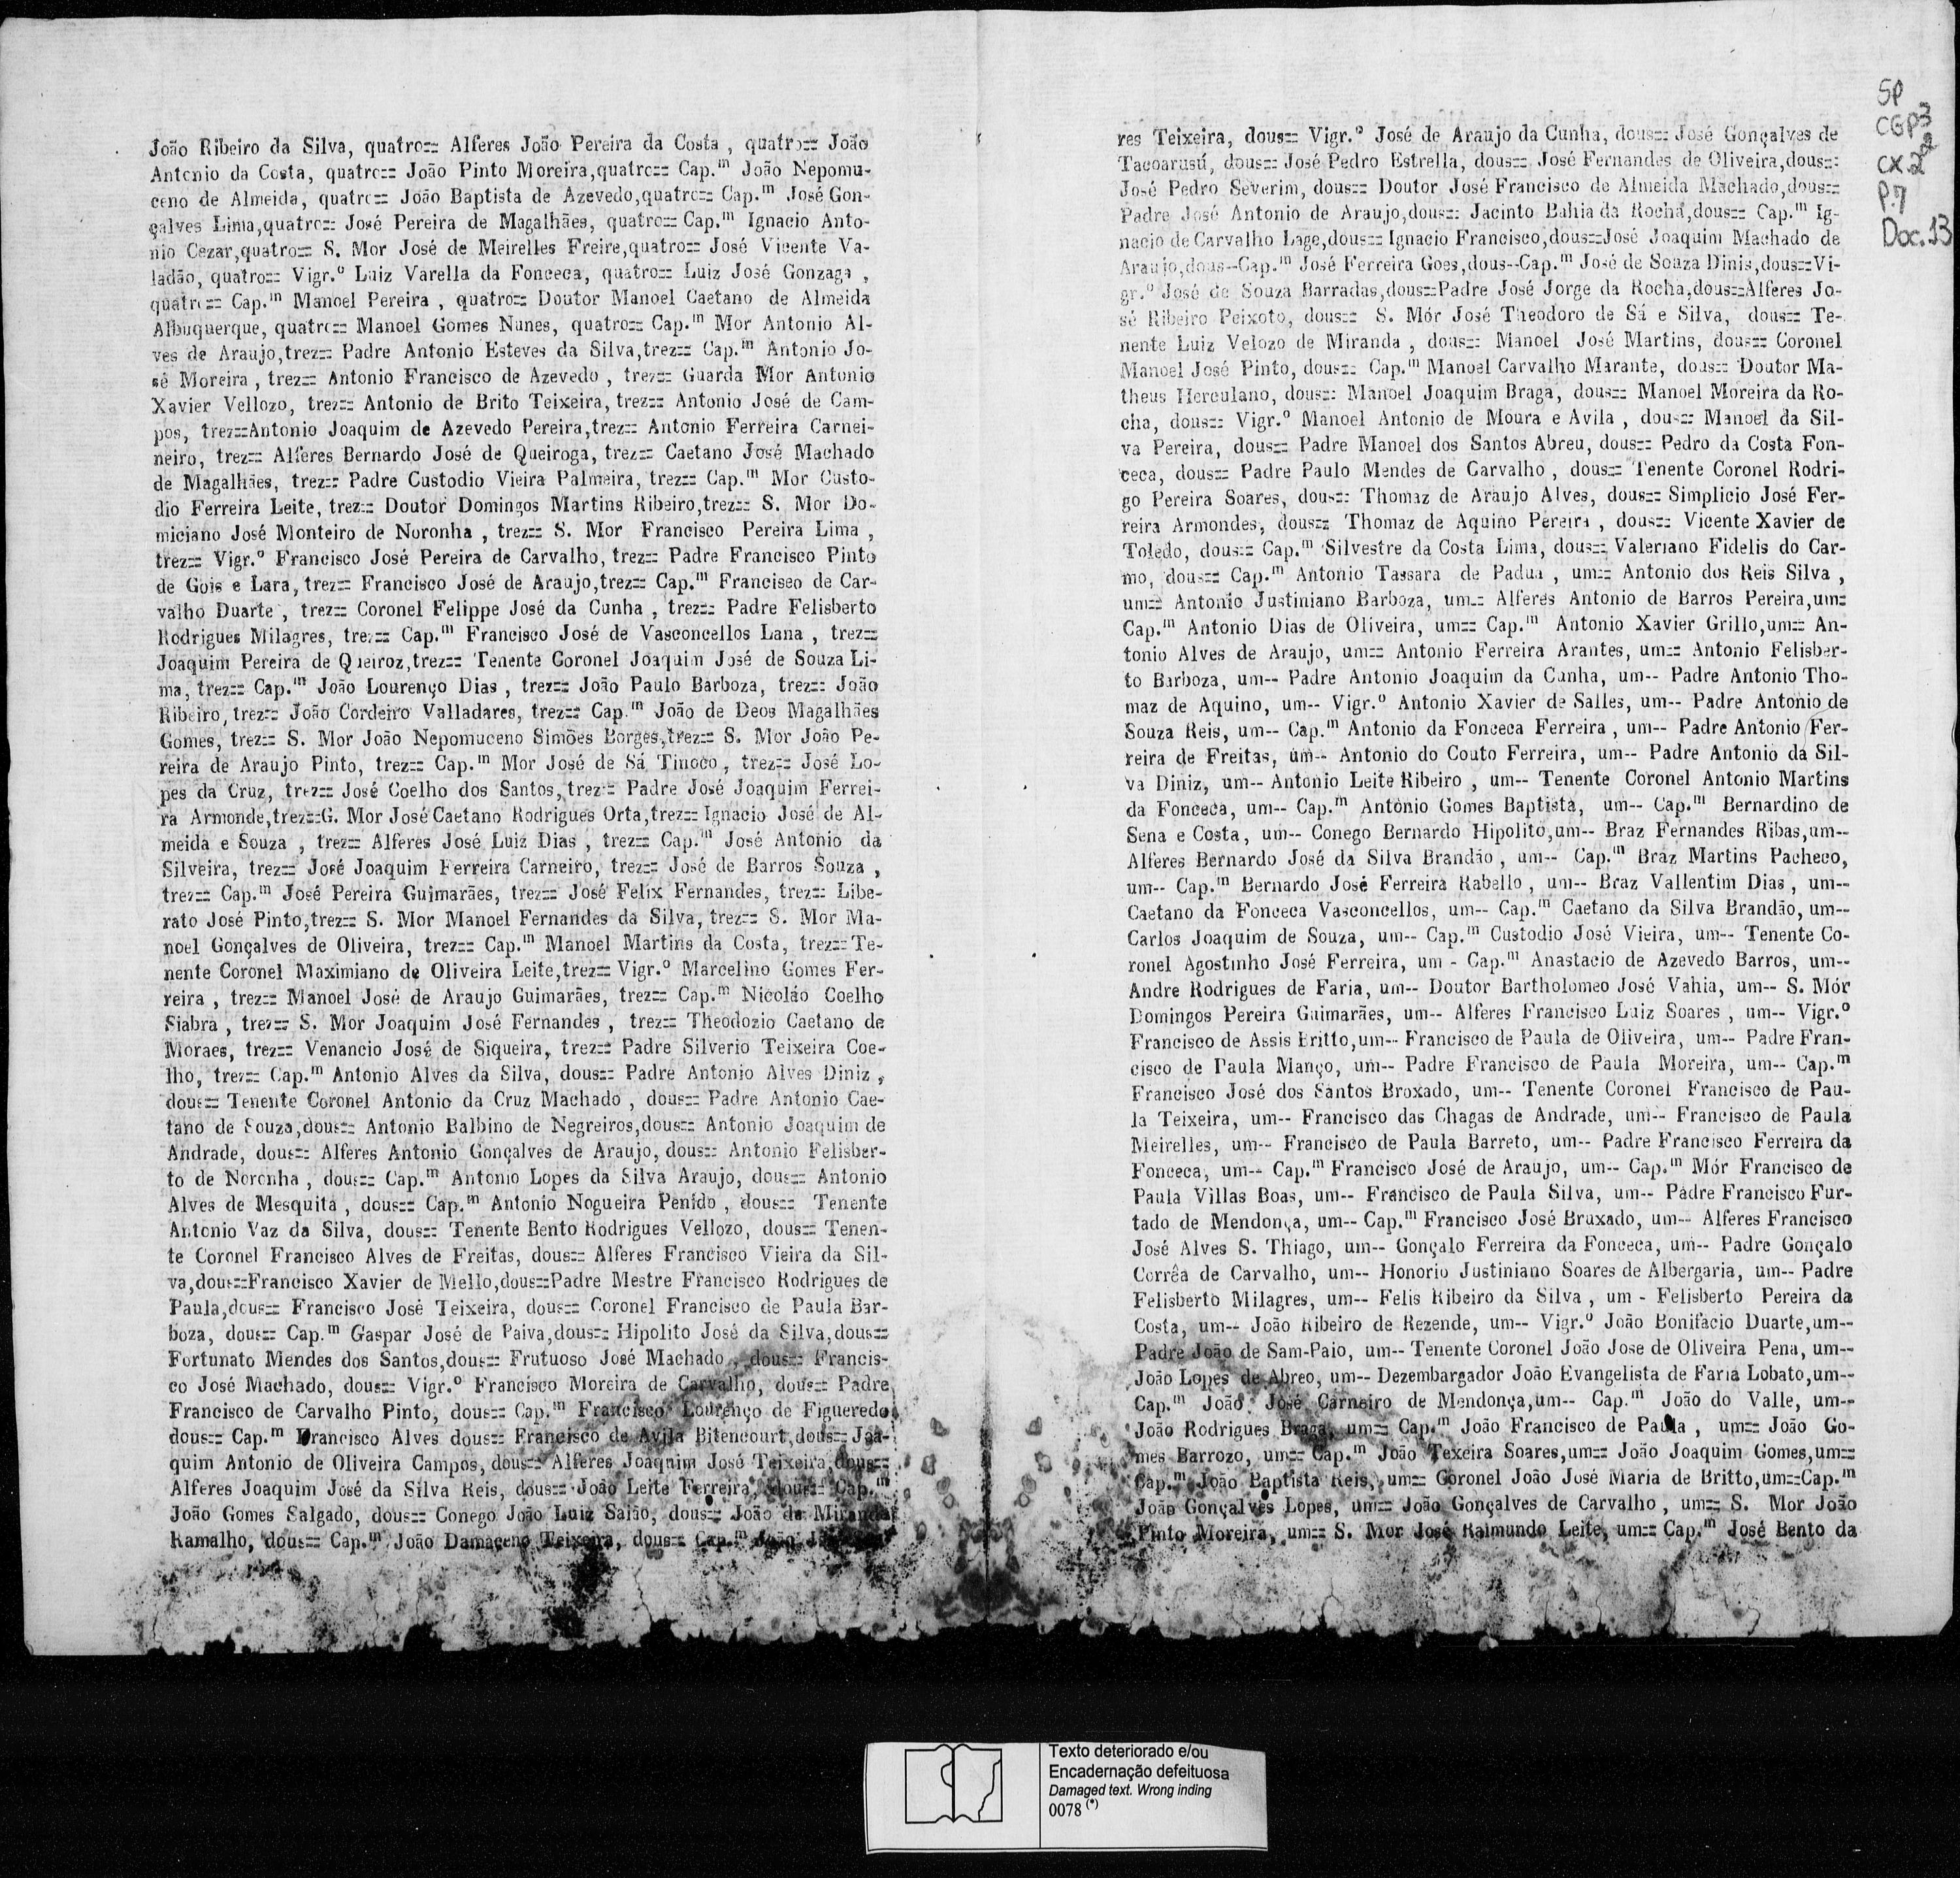 João Ribeiro da Silva, quatro== Alferes João Pereira da Costa , quatro== João
Antonio da Costa, quatro== João Pinto Moreira,quatro== Cap.m João Nepomu-
ceno de Almeida, quatro== João Baptista de Azevedo,quatro== Cap.m José Gon-
çalves Lima,quatro== José Pereira de Magalhães, quatro== Cap.m Ignacio Anto-
nio Cezar,quatro== S. Mor José de Meirelles Freire,quatro== José Vicente Va-
ladão, quatro== Vigr.o Luiz Varella da Fonceca, quatro== Luiz José Gonzaga ,
quatro== Cap.m Manoel Pereira , quatro== Doutor Manoel Caetano de Almeida
Albuquerque, quatro== Manoel Gomes Nunes, quatro== Cap.m Mor Antonio Al-
ves de Araujo,trez== Padre Antonio Esteves da Silva,trez== Cap.m Antonio Jo-
sé Moreira , trez== Antonio Francisco de Azevedo , trez== Guarda Mor Antonio
Xavier Vellozo, trez== Antonio de Brito Teixeira, trez== Antonio José de Cam-
pos, trez==Antonio Joaquim de Azevedo Pereira,trez== Antonio Ferreira Carnei-
neiro, trez== Alferes Bernardo José de Queiroga, trez== Caetano José Machado
de Magalhães, trez== Padre Custodio Vieira Palmeira, trez== Cap.m Mor Custo-
dio Ferreira Leite, trez== Doutor Domingos Martins Ribeiro,trez== S. Mor Do-
miciano José Monteiro de Noronha , trez== S. Mor Francisco Pereira Lima ,
trez== Vigr.o Francisco José Pereira de Carvalho, trez== Padre Francisco Pinto
de Gois e Lara, trez== Francisco José de Araujo,trez== Cap.m Francisco de Car-
valho Duarte , trez== Coronel Felippe José da Cunha , trez== Padre Felisberto
Rodrigues Milagres, trez== Cap.m Francisco José de Vasconcellos Lana , trez==
Joaquim Pereira de Queiroz,trez== Tenente Coronel Joaquim José de Souza Li-
ma, trez== Cap.m João Lourenço Dias , trez== João Paulo Barboza, trez== João
Ribeiro, trez== João Cordeiro Valladares, trez== Cap.m João de Deos Magalhães
Gomes, trez== S. Mor João Nepomuceno Simões Borges,trez== S. Mor João Pe-
reira de Araujo Pinto, trez== Cap.m Mor José de Sá Tinoco , trez== José Lo-
pes da Cruz, trez== José Coelho dos Santos, trez== Padre José Joaquim Ferrei-
ra Armonde,trez==G. Mor José Caetano Rodrigues Orta,trez== Ignacio José de Al-
meida e Souza , trez== Alferes José Luiz Dias , trez== Cap.m José Antonio da
Silveira, trez== José Joaquim Ferreira Carneiro, trez== José de Barros Souza ,
trez== Cap.m José Pereira Guimarães, trez== José Felix Fernandes, trez== Libe-
rato José Pinto,trez== S. Mor Manoel Fernandes da Silva, trez== S. Mor Ma-
noel Gonçalves de Oliveira, trez== Cap.m Manoel Martins da Costa, trez== Te-
nente Coronel Maximiano de Oliveira Leite,trez== Vigr.o Marcelino Gomes Fer-
reira , trez== Manoel José de Araujo Guimarães, trez== Cap.m Nicoláo Coelho
Siabra , trez== S. Mor Joaquim José Fernandes , trez== Theodozio Caetano de
Moraes, trez== Venancio José de Siqueira, trez== Padre Silverio Teixeira Coe-
lho, trez== Cap.m Antonio Alves da Silva, dous== Padre Antonio Alves Diniz ,
dous== Tenente Coronel Antonio da Cruz Machado , dous== Padre Antonio Cae-
tano de Souza,dous== Antonio Balbino de Negreiros,dous== Antonio Joaquim de
Andrade, dous== Alferes Antonio Gonçalves de Araujo, dous== Antonio Felisber-
to de Noronha , dous== Cap.m Antonio Lopes da Silva Araujo, dous== Antonio
Alves de Mesquita , dous== Cap.m Antonio Nogueira Penido , dous== Tenente
Antonio Vaz da Silva, dous== Tenente Bento Rodrigues Vellozo, dous== Tenen-
te Coronel Francisco Alves de Freitas, dous== Alferes Francisco Vieira da Sil-
va,dous==Francisco Xavier de Mello,dous==Padre Mestre Francisco Rodrigues de
Paula,dous== Francisco José Teixeira, dous== Coronel Francisco de Paula Bar-
boza, dous== Cap.m Gaspar José de Paiva,dous== Hipolito José da Silva,dous==
Fortunato Mendes dos Santos,dous== Frutuoso José Machado , dous== Francis-
co José Machado, dous== Vigr.o Francisco Moreira de Carvalho, dous== Padre
Francisco de Carvalho Pinto, dous== Cap.m Francisco Lourenço de Figueredo
dous== Cap.m Francisco Alves dous== Francisco de Avila Bitencourt,dous== Joa-
quim Antonio de Oliveira Campos, dous== Alferes Joaquim José Teixeira,dous==
Alferes Joaquim José da Silva Reis, dous== João Leite Ferreira, dous== Cap.m
João Gomes Salgado, dous== Conego João Luiz Saião, dous== João de Miranda
Ramalho, dous== Cap.m João Damaçeno Teixeira, dous== Cap.m João
res Teixeira, dous== Vigr.o José de Araujo da Cunha, dous== José Gonçalves de
Tacoarusú, dous== José Pedro Estrella, dous== José Fernandes de Oliveira,dous==
José Pedro Severim, dous== Doutor José Francisco de Almeida Machado,dous==
Padre José Antonio de Araujo,dous== Jacinto Bahia da Rocha,dous== Cap.m Ig-
nacio de Carvalho Lage,dous== Ignacio Francisco,dous==José Joaquim Machado de
Araujo,dous--Cap.m José Ferreira Goes,dous--Cap.m José de Souza Dinis,dous==Vi-
gr.o José de Souza Barradas,dous==Padre José Jorge da Rocha,dous==Alferes Jo-
sé Ribeiro Peixoto, dous== S. Mór José Theodoro de Sá e Silva, dous== Te-
nente Luiz Velozo de Miranda , dous== Manoel José Martins, dous== Coronel
Manoel José Pinto, dous== Cap.m Manoel Carvalho Marante, dous== Doutor Ma-
theus Herculano, dous== Manoel Joaquim Braga, dous== Manoel Moreira da Ro-
cha, dous== Vigr.o Manoel Antonio de Moura e Avila , dous== Manoel da Sil-
va Pereira, dous== Padre Manoel dos Santos Abreu, dous== Pedro da Costa Fon-
ceca, dous== Padre Paulo Mendes de Carvalho , dous== Tenente Coronel Rodri-
go Pereira Soares, dous== Thomaz de Araujo Alves, dous== Simplicio José Fer-
reira Armondes, dous== Thomaz de Aquino Pereira , dous== Vicente Xavier de
Toledo, dous== Cap.m Silvestre da Costa Lima, dous== Valeriano Fidelis do Car-
mo, dous== Cap.m Antonio Tassara de Padua , um== Antonio dos Reis Silva ,
um== Antonio Justiniano Barboza, um== Alferes Antonio de Barros Pereira,um=
Cap.m Antonio Dias de Oliveira, um== Cap.m Antonio Xavier Grillo,um== An-
tonio Alves de Araujo, um== Antonio Ferreira Arantes, um== Antonio Felisber-
to Barboza, um-- Padre Antonio Joaquim da Cunha, um-- Padre Antonio Tho-
maz de Aquino, um-- Vigr.o Antonio Xavier de Salles, um-- Padre Antonio de
Souza Reis, um-- Cap.m Antonio da Fonceca Ferreira , um-- Padre Antonio Fer-
reira de Freitas, um-- Antonio do Couto Ferreira, um-- Padre Antonio da Sil-
va Diniz, um-- Antonio Leite Ribeiro , um-- Tenente Coronel Antonio Martins
da Fonceca, um-- Cap.m Antonio Gomes Baptista, um-- Cap.m Bernardino de
Sena e Costa, um-- Conego Bernardo Hipolito,um-- Braz Fernandes Ribas,um--
Alferes Bernardo José da Silva Brandão , um-- Cap.m Braz Martins Pacheco,
um-- Cap.m Bernardo José Ferreira Rabello , um-- Braz Vallentim Dias , um--
Caetano da Fonceca Vasconcellos, um-- Cap.m Caetano da Silva Brandão, um--
Carlos Joaquim de Souza, um-- Cap.m Custodio José Vieira, um-- Tenente Co-
ronel Agostinho José Ferreira, um - Cap.m Anastacio de Azevedo Barros, um--
Andre Rodrigues de Faria, um-- Doutor Bartholomeo José Vahia, um-- S. Mór
Domingos Pereira Guimarães, um-- Alferes Francisco Luiz Soares , um-- Vigr.o
Francisco de Assis Britto,um-- Francisco de Paula de Oliveira, um-- Padre Fran-
cisco de Paula Manço, um-- Padre Francisco de Paula Moreira, um-- Cap.m
Francisco José dos Santos Broxado, um-- Tenente Coronel Francisco de Pau-
la Teixeira, um-- Francisco das Chagas de Andrade, um-- Francisco de Paula
Meirelles, um-- Francisco de Paula Barreto, um-- Padre Francisco Ferreira da
Fonceca, um-- Cap.m Francisco José de Araujo, um-- Cap.m Mór Francisco de
Paula Villas Boas, um-- Francisco de Paula Silva, um-- Padre Francisco Fur-
tado de Mendonça, um-- Cap.m Francisco José Bruxado, um-- Alferes Francisco
José Alves S. Thiago, um-- Gonçalo Ferreira da Fonceca, um-- Padre Gonçalo
Corrêa de Carvalho, um-- Honorio Justiniano Soares de Albergaria, um-- Padre
Felisberto Milagres, um-- Felis Ribeiro da Silva , um - Felisberto Pereira da
Costa, um-- João Ribeiro de Rezende, um-- Vigr.o João Bonifacio Duarte,um--
Padre João de Sam-Paio, um-- Tenente Coronel João Jose de Oliveira Pena, um--
João Lopes de Abreo, um-- Dezembargador João Evangelista de Faria Lobato,um--
Cap.m João José Carneiro de Mendonça,um-- Cap.m João do Valle, um--
João Rodrigues Braga, um== Cap.m João Francisco de Paula , um== João Go-
mes Barrozo, um== Cap.m João Texeira Soares,um== João Joaquim Gomes,um==
Cap.m João Baptista Reis, um== Coronel João José Maria de Britto,um==Cap.m
João Gonçalves Lopes, um== João Gonçalves de Carvalho , um== S. Mor João
Pinto Moreira, um== S. Mor José Raimundo Leite, um== Cap.m José Bento da
SP
CGP3
cx.2
P.7
Doc.13
Texto deteriorado e/ou
Encadernação defeituosa
Damaged text. Wrong inding
0078 (*)